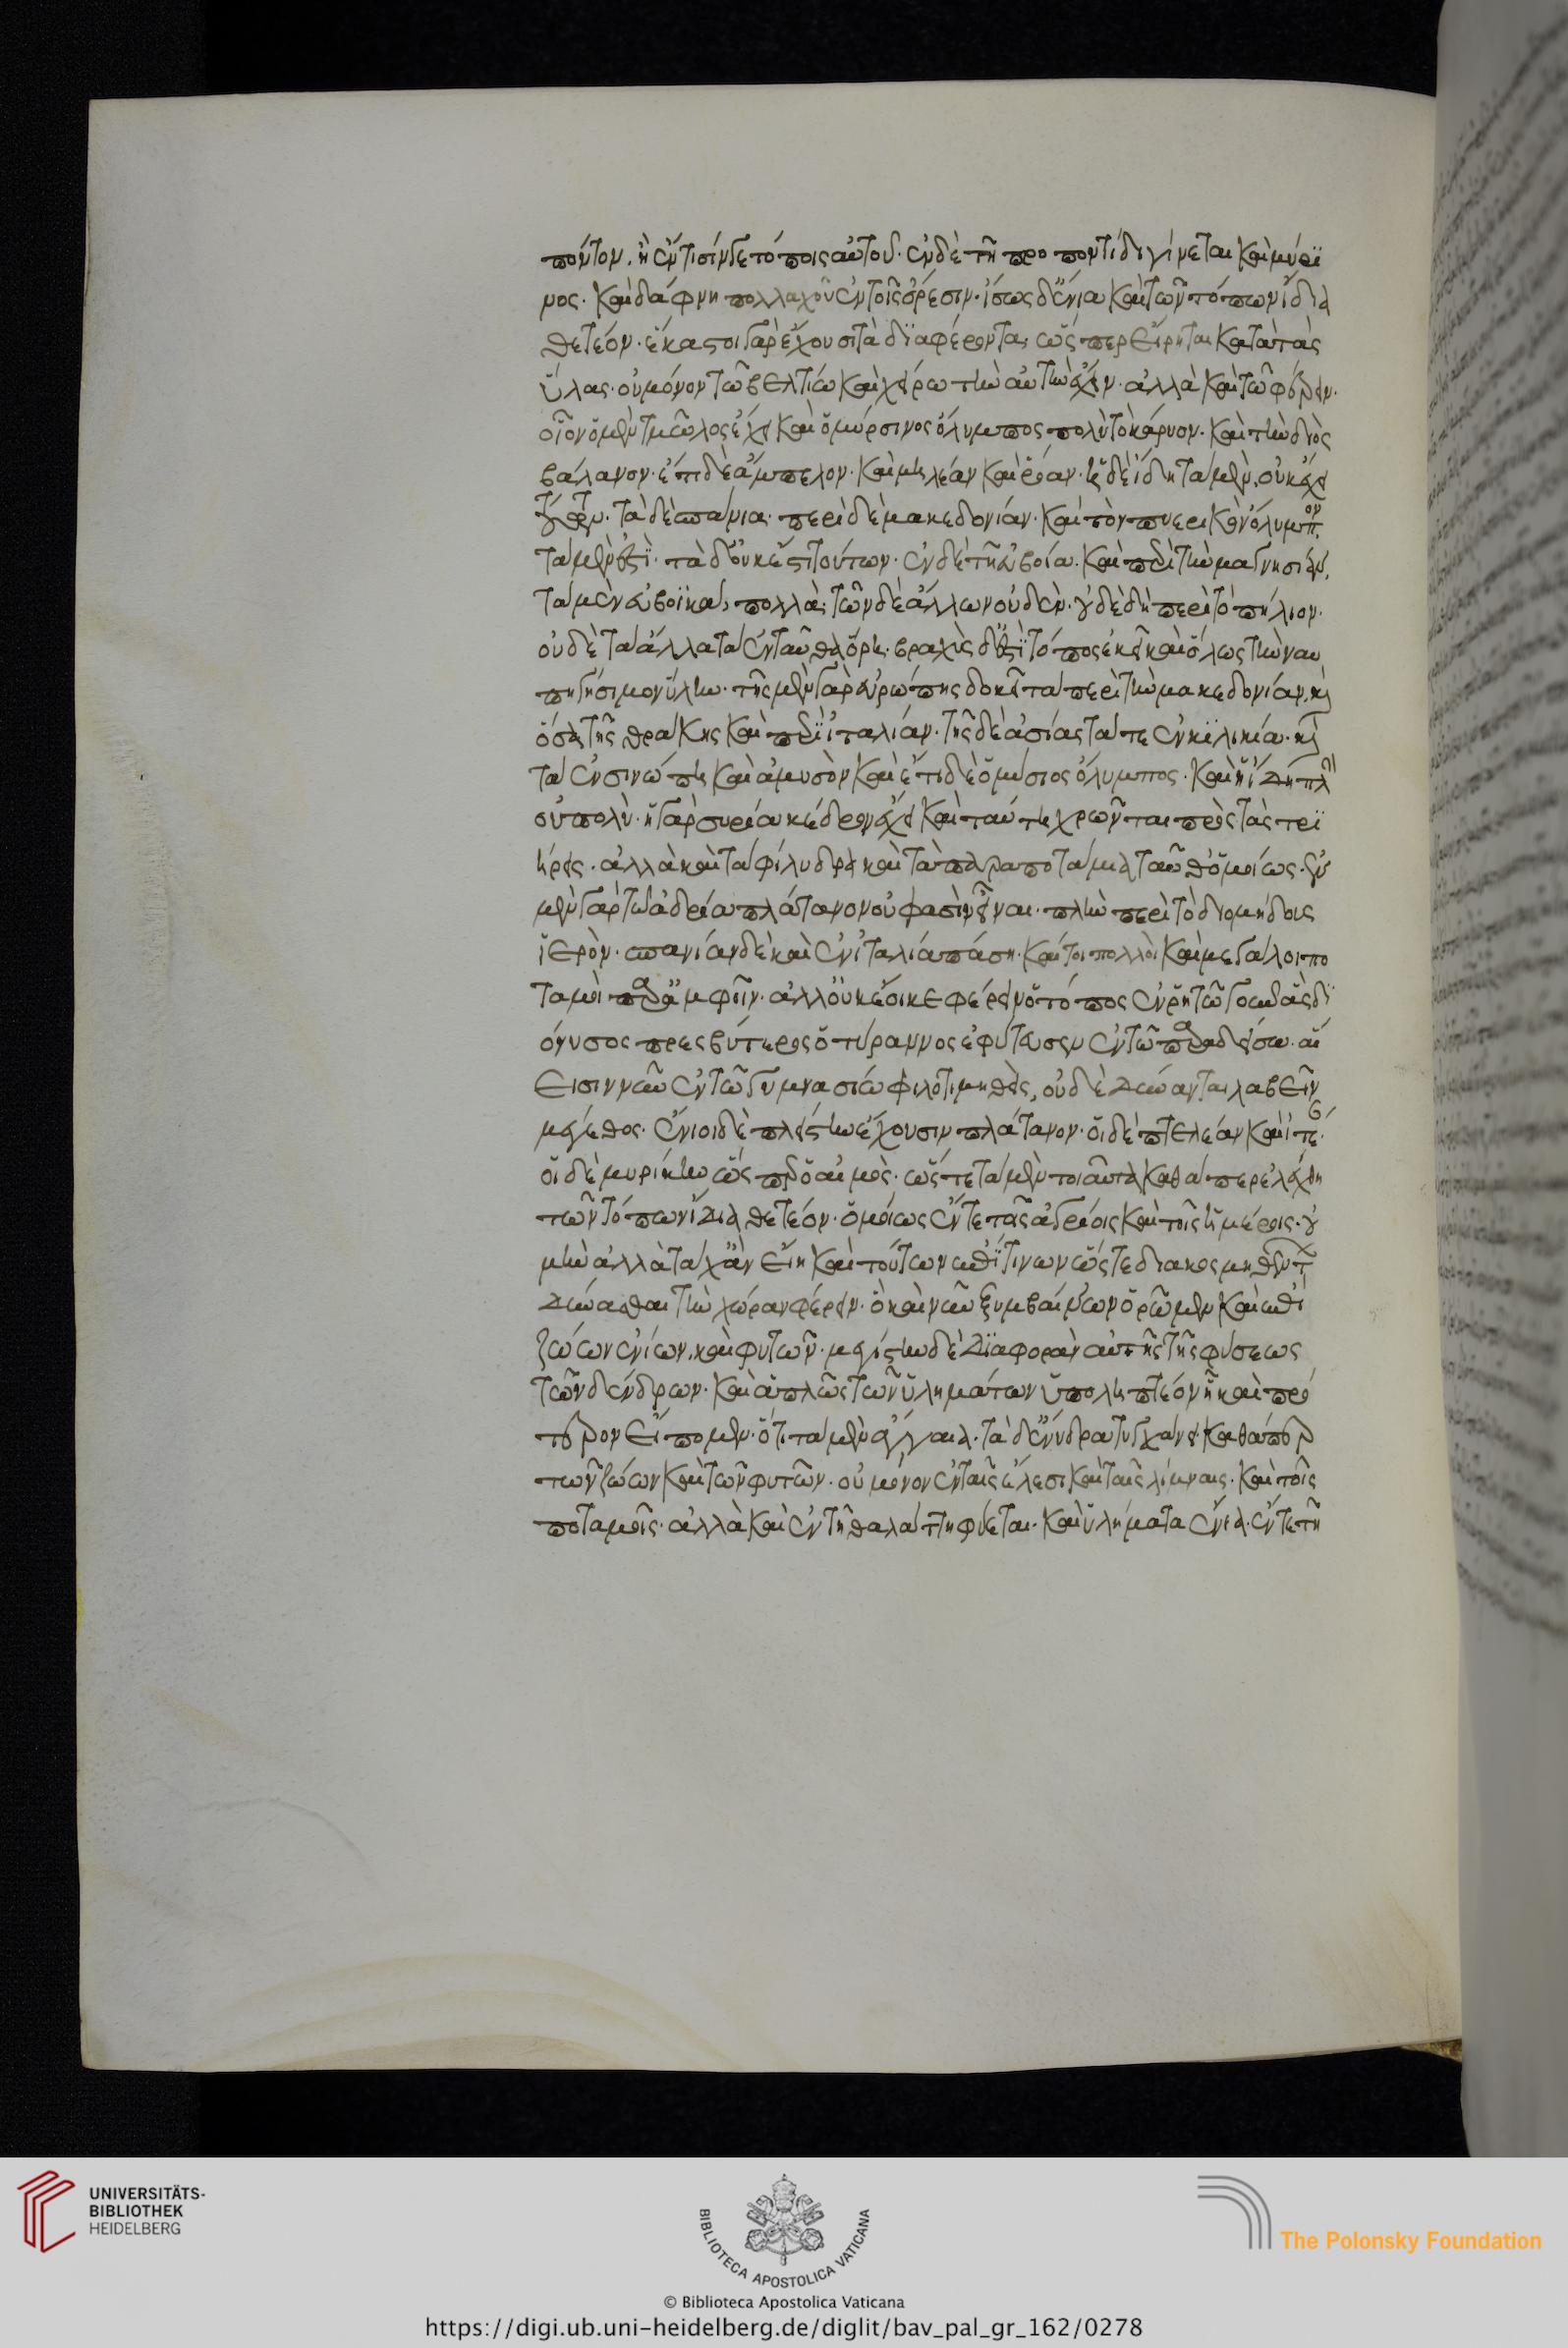 πόντον. ἢ ἔν τισίν γε τόποις αὐτοῦ. ἐν δὲ τῆ προποντίδι γίνεται καὶ μύρϊ
νος. καὶ δάφνη πολλαχοῦ ἐν τοῖς ὄρεσιν. ἴσως δ' ἔνια καὶ τῶν τόπων ἴδια
θετέον. ἕκαστοι γὰρ ἔχουσι τὰ διαφέροντα, ὥσπερ εἴρηται κατὰ τὰς
ὕλας. οὐ μόνον τῶ βελτίω καὶ χείρω τὴν αὐτὴν ἔχειν. ἀλλὰ καὶ τῶ φέρειν.
οἷον ὁ μὲν τμῶλος ἔχει καὶ ὁ μύρσινος ὄλυμπος πολὺ τὸ κάρυον. καὶ τὴν διὸς
βάλανον. ἔτι δὲ ἄμπελον. καὶ μηλέαν καὶ ῥόαν. ἡ δὲ ἴδη τὰ μὲν, οὐκ ἔχει
τούτων. τὰ δὲ σπάνια. περὶ δὲ μακεδονίαν. καὶ τὸν πιερικὸν ὄλυμπον.
τὰ μὲν ἐστὶ. τὰ δ' οὐκ ἔστι τούτων. ἐν δὲ τῆ εὐβοία. καὶ περὶ τὴν μαγνησίαν.
τὰ μὲν εὐβοϊκὰ, πολλὰ, τῶν δὲ ἄλλων οὐδέν. οὐδὲ δὴ περὶ τὸ πήλιον.
οὐδὲ τὰ ἄλλα τὰ ἐνταῦθα ὄρη. βραχὺς δ' ἐστὶ τόπος ἐκεῖ καὶ ὅλως τὴν ναυ
πηγήσιμον ὕλην. τῆς μὲν γὰρ εὐρώπης δοκεῖ τὰ περὶ τὴν μακεδονίαν. καὶ
ὅσα τῆς θράκης καὶ περὶ ἰταλίαν. τῆς δὲ ἀσίας τά τε ἐν κιλικία. καὶ
τὰ ἐν σινώπη καὶ ἀμυσὸν καὶ ἔτι δὲ ὁ μύσιος ὄλυμπος. καὶ ἡ ἴδη πλὴν
οὐ πολύ. ἡ γὰρ συρία κέδρον ἔχει καὶ ταύτη χρῶνται πρὸς τὰς τρι
ήρεις. ἀλλὰ καὶ τὰ φίλυδρα καὶ τὰ παραποτάμια ταῦθ' ὁμοίως. ἐν
μὲν γὰρ τῶ ἀδρία πλάτανον οὐ φασὶν εἶναι. πλὴν περὶ τὸ διομήδους
ἱερὸν. σπανίαν δὲ καὶ ἐν ἰταλία πάση. καίτοι πολλοὶ καὶ μεγάλοι πο
ταμοὶ παρ' ἄμφοῖν. ἀλλ' οὐκ ἔοικε φέρειν ὁ τόπος ἐν ῥηγίω γοῦν ἃς δι
όνυσος πρεσβύτερος ὁ τύραννος ἐφύτευσεν ἐν τῶ παραδείσω. αἵ
εἰσιν νῦν ἐν τῶ γυμνασίω φιλοτιμηθεῖς, οὐδὲ δύνανται λαβεῖν
μέγεθος. ἔνιοι δὲ πλείστην ἔχουσιν πλάτανον. οἱ δὲ πτελέαν καὶ ἰτέ.
οἱ δὲ μυρίκην ὥσπερ ὁ αἷμος. ὥστε τὰ μὲν τοιαῦτα καθάπερ ἐλέχθη
τῶν τόπων ἴδια θετέον. ὁμοίως ἔν τε τοῖς ἀγρίοις καὶ τοῖς ἡμέροις. οὐ
μὴν ἀλλὰ τάχ' ἂν εἴη καὶ τούτων ἐπί τινων ὥστε διακοσμηθέντων
δύνασθαι τὴν χώραν φέρειν. ὃ καὶ νῦν ξυμβαίνον ὁρῶμεν καὶ ἐπὶ
ζώων ἐνίων. καὶ φυτῶν. μεγίστην δὲ διαφορὰν αὐτῆς τῆς φύσεως
τῶν δένδρων. καὶ ἁπλῶς τῶν ὑλημάτων ὑποληπτέον ἣ καὶ πρό
τερον εἴπομεν. ὅτι τὰ μὲν ἔγγαια. τὰ δ' ἔνυδρα τυγχάνει καθάπερ
τῶν ζώων καὶ τῶν φυτῶν. οὐ μόνον ἐν τοῖς ἕλεσι καὶ ταῖς λίμναις. καὶ τοῖς
ποταμοῖς. ἀλλὰ καὶ ἐν τῆ θαλάττη φύεται. καὶ ὑλήματα ἔνια. ἔν τε τῆ
UNIVERSITÄTS-
BIBLIOTHEK
HEIDELBERG
BIBLIOTECA APOSTOLICA VATICANA
The Polonsky Foundation
© Biblioteca Apostolica Vaticana
https://digi.ub.uni-heidelberg.de/diglit/bav_pal_gr_162/0278